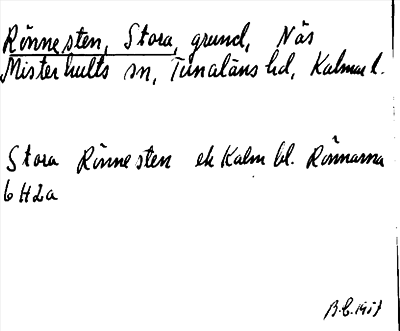 Rönnesten, Stora, grund, Näs
Misterhults sn, Tunaläns hd, Kalmar l.
Stora Rönnesten ek Kalm bl. Rönnarna
6 H 2a